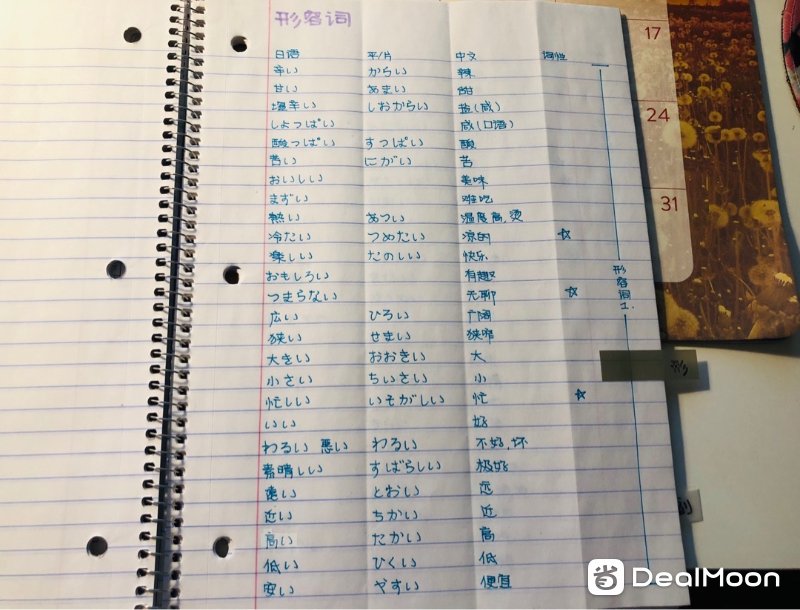 形容词
日语 平/片 中文 词性
辛い からい 辣
甘い あまい 甜
塩辛い しおからい 盐(咸)
しょっぱい 咸(口语)
酸っぱい すっぱい 酸
苦い にがい 苦
おいしい 美味
まずい 难吃
熱い あつい 温度高,烫
冷たい つめたい 凉的 ☆
楽しい たのしい 快乐
おもしろい 有趣
つまらない 无聊 ☆
広い ひろい 广阔
狭い せまい 狭窄
大きい おおきい 大
小さい ちいさい 小
忙しい いそがしい 忙 ☆
いい 好
わるい 悪い わるい 不好,坏
素晴しい すばらしい 极好
遠い とおい 远
近い ちかい 近
高い たかい 高
低い ひくい 低
安い やすい 便宜
形容词1.
形
17
24
31
省 DealMoon